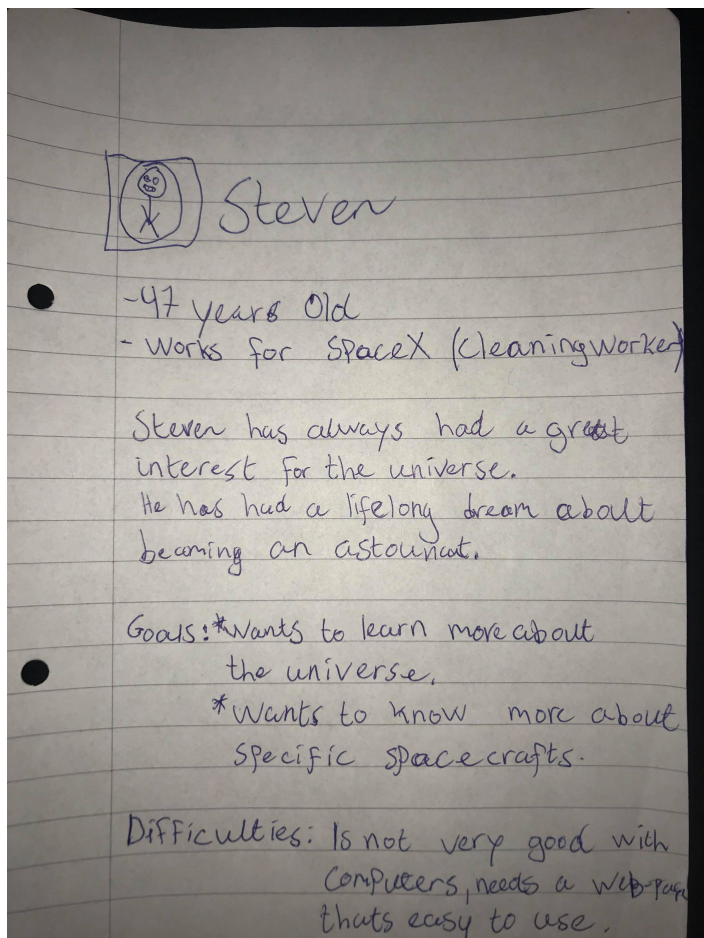 Steven
-47 years Old
- Works for SpaceX (Cleaning Worker)
Steven has always had a great
interest for the universe.
He has had a lifelong dream about
becoming an astounaut.
Goals: *Wants to learn more about
the universe.
*Wants to know more about
specific spacecrafts.
Difficulties: Is not very good with
computers, needs a web-page
thats easy to use.